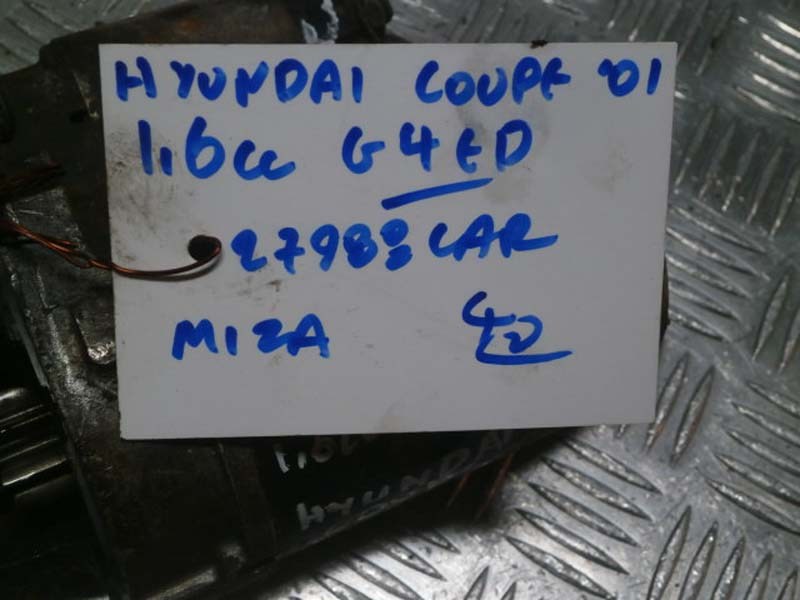 HYUNDAI COUPE '01
1,6cc G4ED
27982 CAR
MIZA 40
1,6cc
HYUNDAI